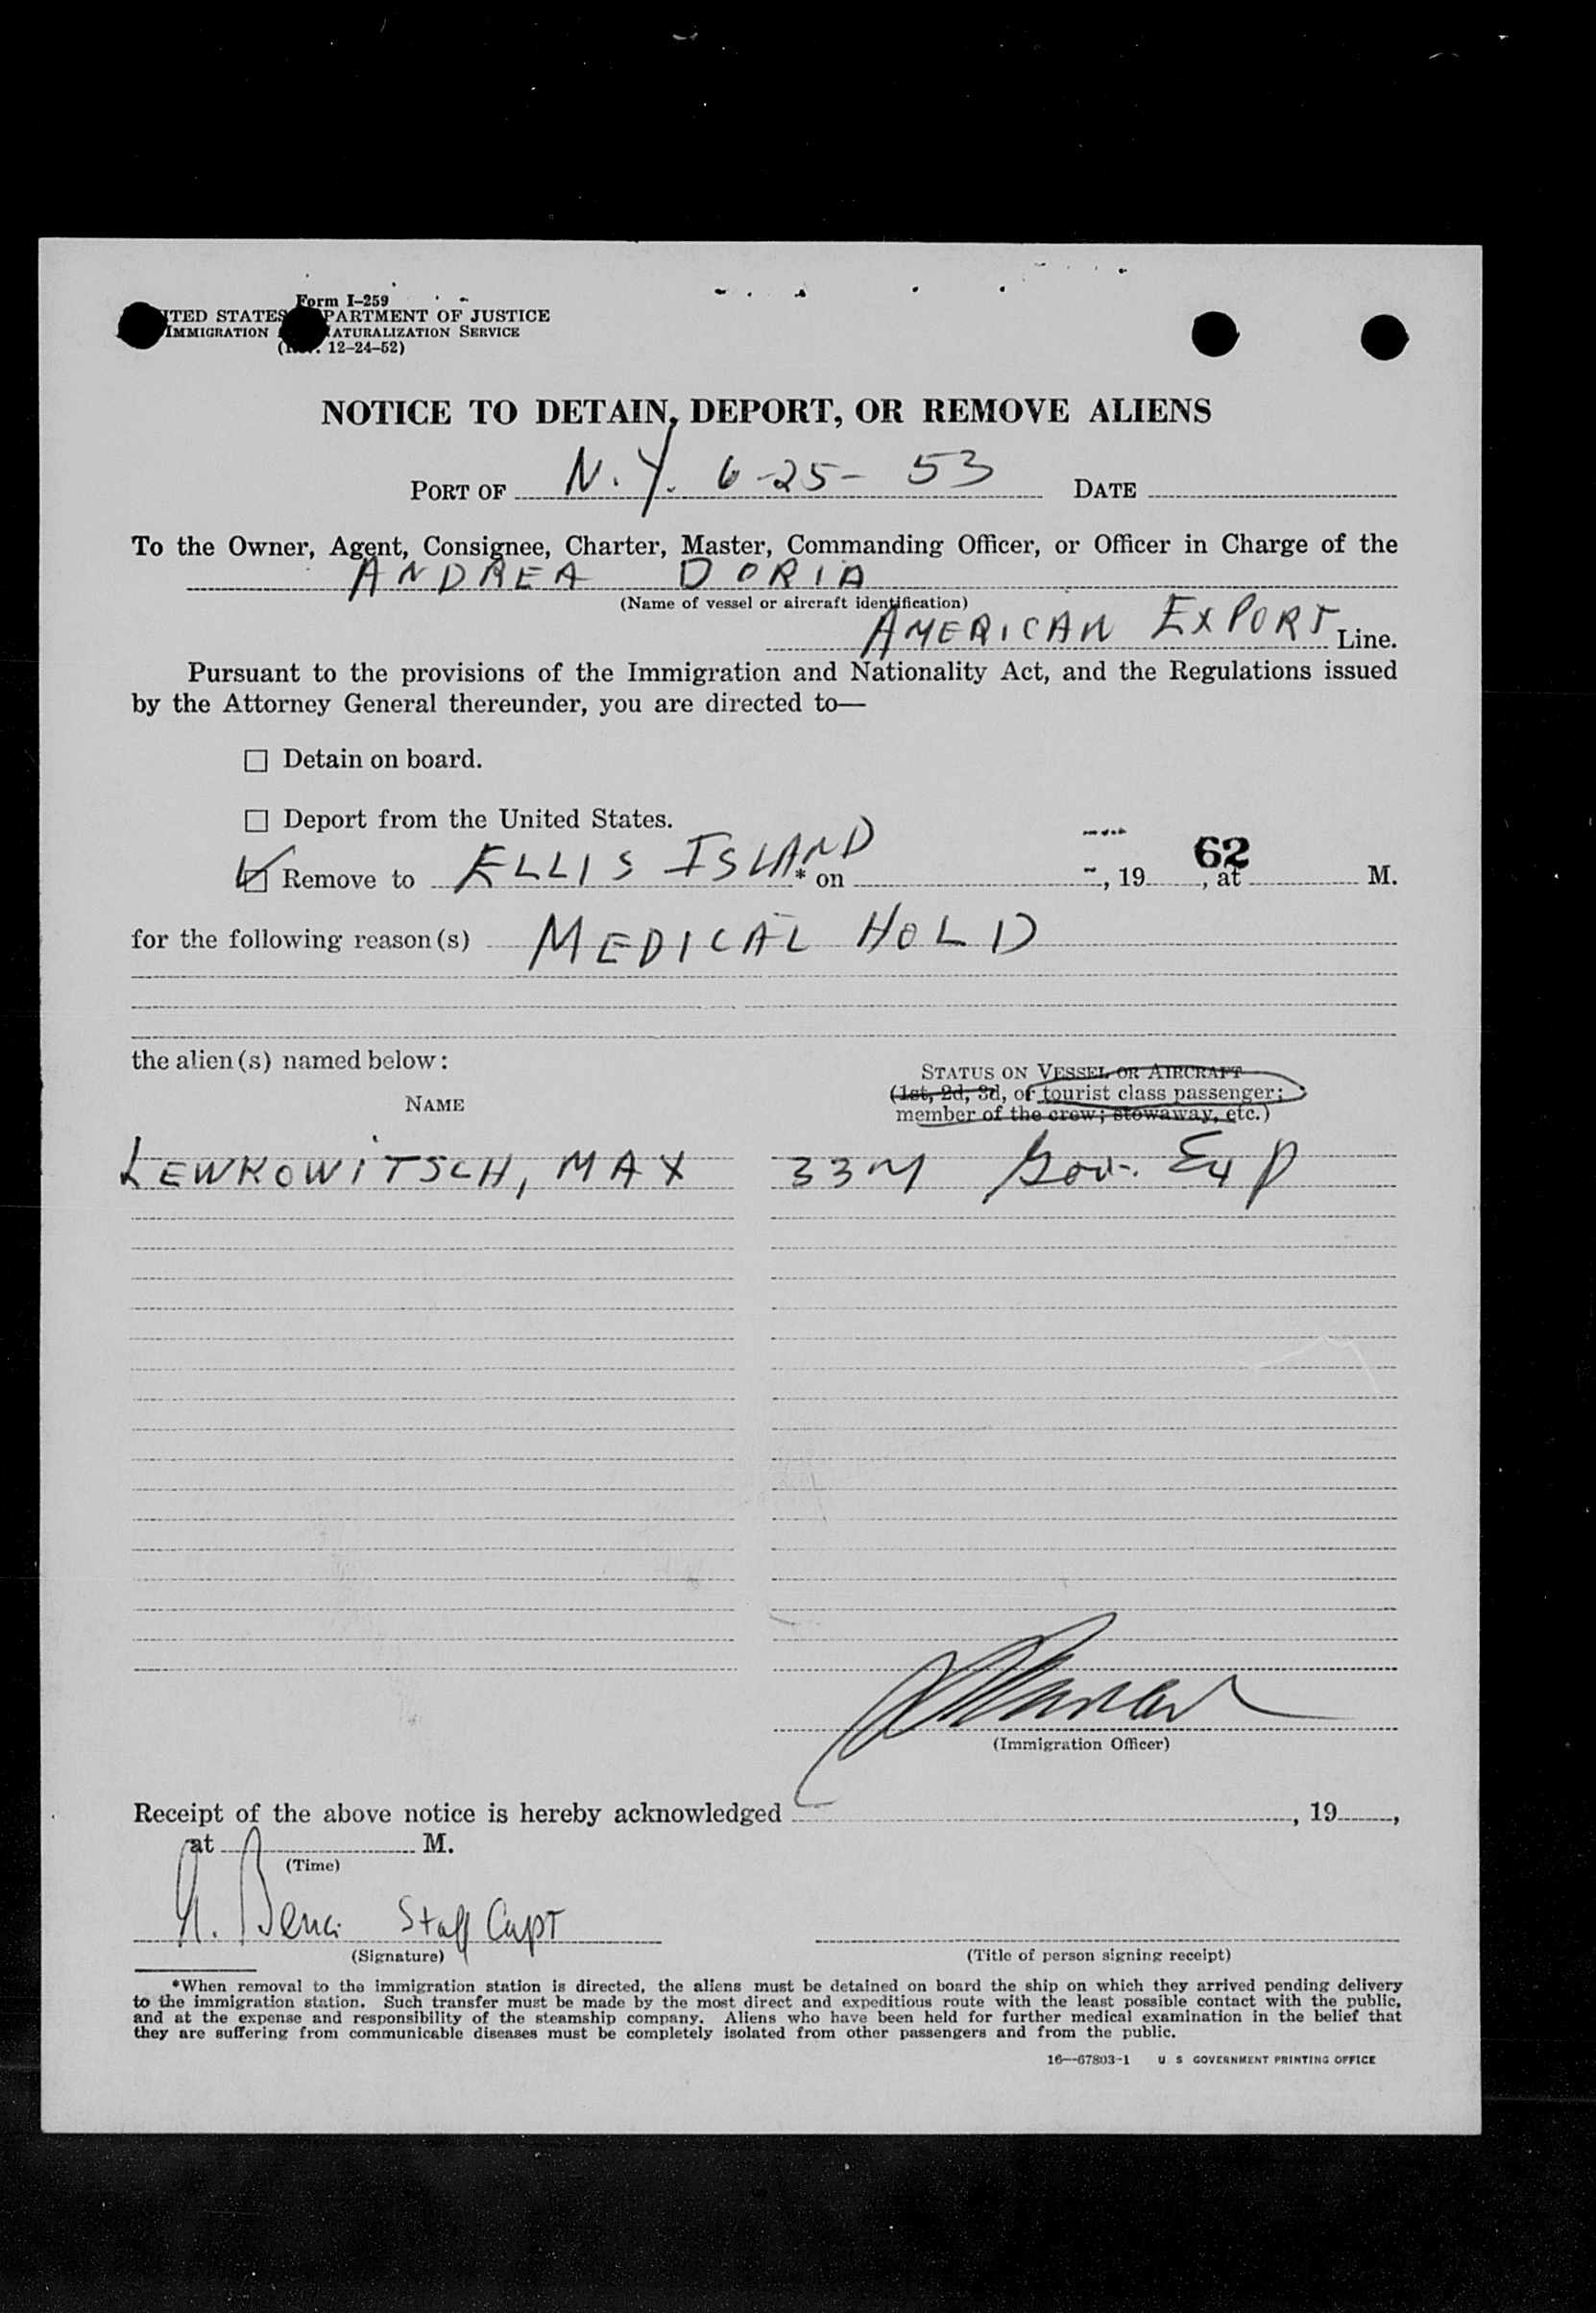 Form I-259
ITED STATES PARTMENT OF JUSTICE
IMMIGRATION ATURALIZATION SERVICE
12-24-52)
NOTICE TO DETAIN, DEPORT, OR REMOVE ALIENS
PORT OF N.Y. 6-25-53 DATE
To the Owner, Agent, Consignee, Charter, Master, Commanding Officer, or Officer in Charge of the
ANDREA DORIA
(Name of vessel or aircraft identification)
AMERICAN EXPORT Line.
Pursuant to the provisions of the Immigration and Nationality Act, and the Regulations issued
by the Attorney General thereunder, you are directed to—
☐ Detain on board.
☐ Deport from the United States.
☑ Remove to ELLIS ISLAND * on , 19 , at M.
62
for the following reason(s) MEDICAL HOLD
the alien(s) named below:
NAME
STATUS ON VESSEL OR AIRCRAFT
(1st, 2d, 3d, or tourist class passenger;
member of the crew; stowaway, etc.)
LEWKOWITSCH, MAX 33 M Gov. Exp
(Immigration Officer)
Receipt of the above notice is hereby acknowledged , 19 ,
at M.
(Time)
Staff Capt
(Signature) (Title of person signing receipt)
*When removal to the immigration station is directed, the aliens must be detained on board the ship on which they arrived pending delivery
to the immigration station. Such transfer must be made by the most direct and expeditious route with the least possible contact with the public,
and at the expense and responsibility of the steamship company. Aliens who have been held for further medical examination in the belief that
they are suffering from communicable diseases must be completely isolated from other passengers and from the public.
16—67803-1 U S GOVERNMENT PRINTING OFFICE